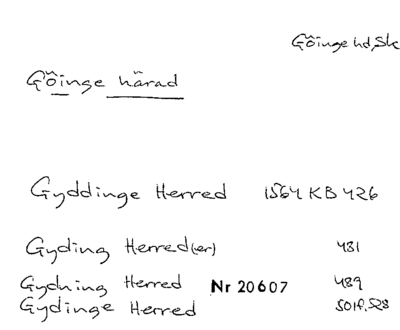 Göinge hd, Sk
Göinge härad
Gyddinge Herred 1564 KB 426
Gyding Herred(er) 431
Gydning Herred Nr 20607 489
Gydinge Herred 501f, 528